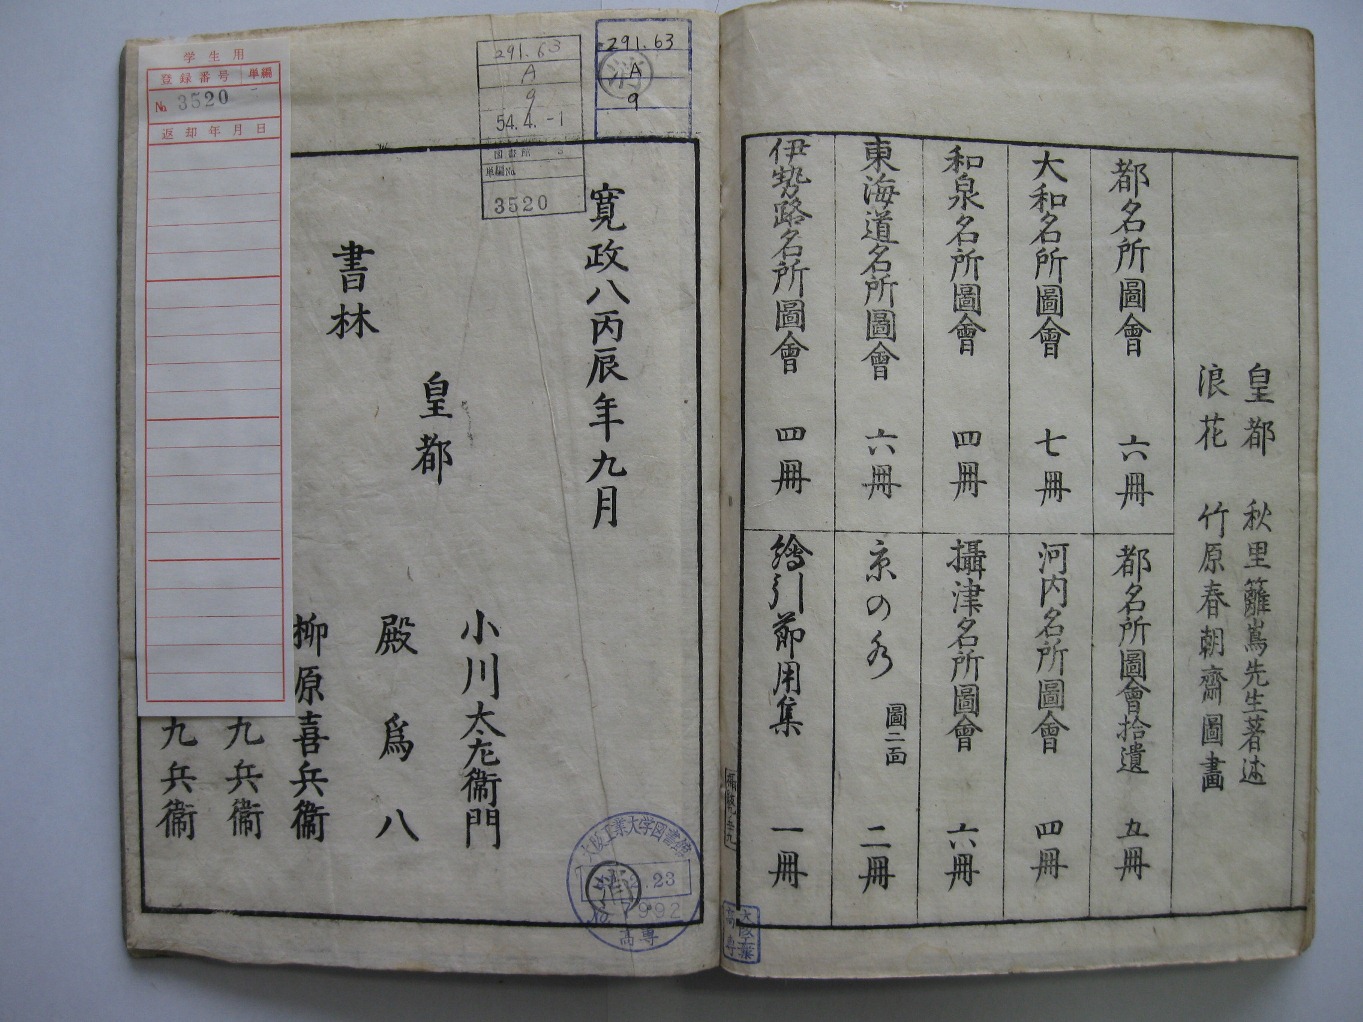 皇都 秋里籬嶌先生著述
浪花 竹原春朝齋圖畫
都名所圖會 六冊
大和名所圖會 七冊
和泉名所圖會 四冊
東海道名所圖會 六冊
伊勢路名所圖會 四冊
都名所圖會拾遺 五冊
河内名所圖會 四冊
攝津名所圖會 六冊
京の水 圖二面 二冊
繪引節用集 一冊
大阪工業
高専
寛政八丙辰年九月
書林
皇都
小川太左衞門
殿爲八
柳原喜兵衞
九兵衞
九兵衞
291.63
A
9
291.63
A
9
54.4.-1
図書館
単編No.
3520
学生用
登録番号 単編
No. 3520
返却年月日
大阪工業大学図書館
2.23
7992
高専